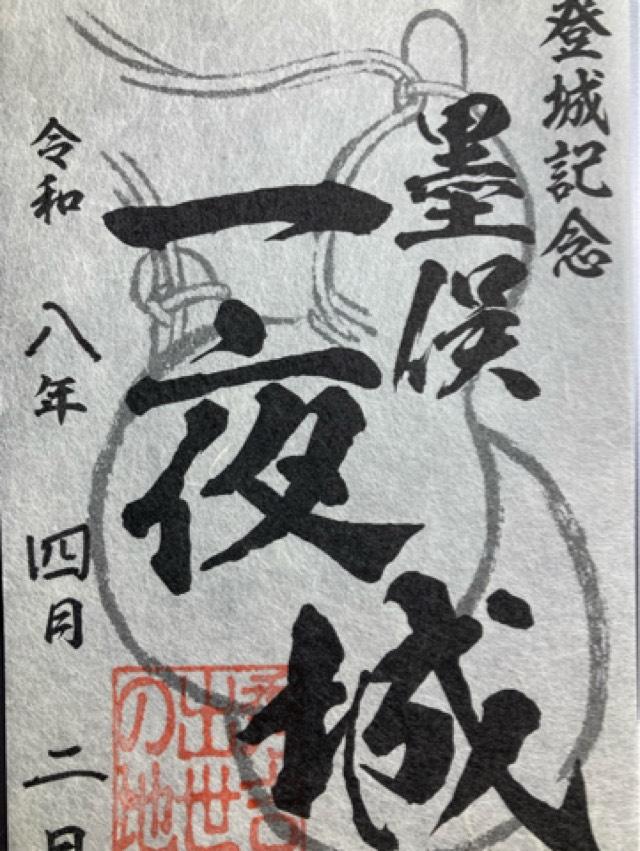 登城記念
墨俣
一夜
城
令和 八年 四月 二日
秀吉
出世
の地